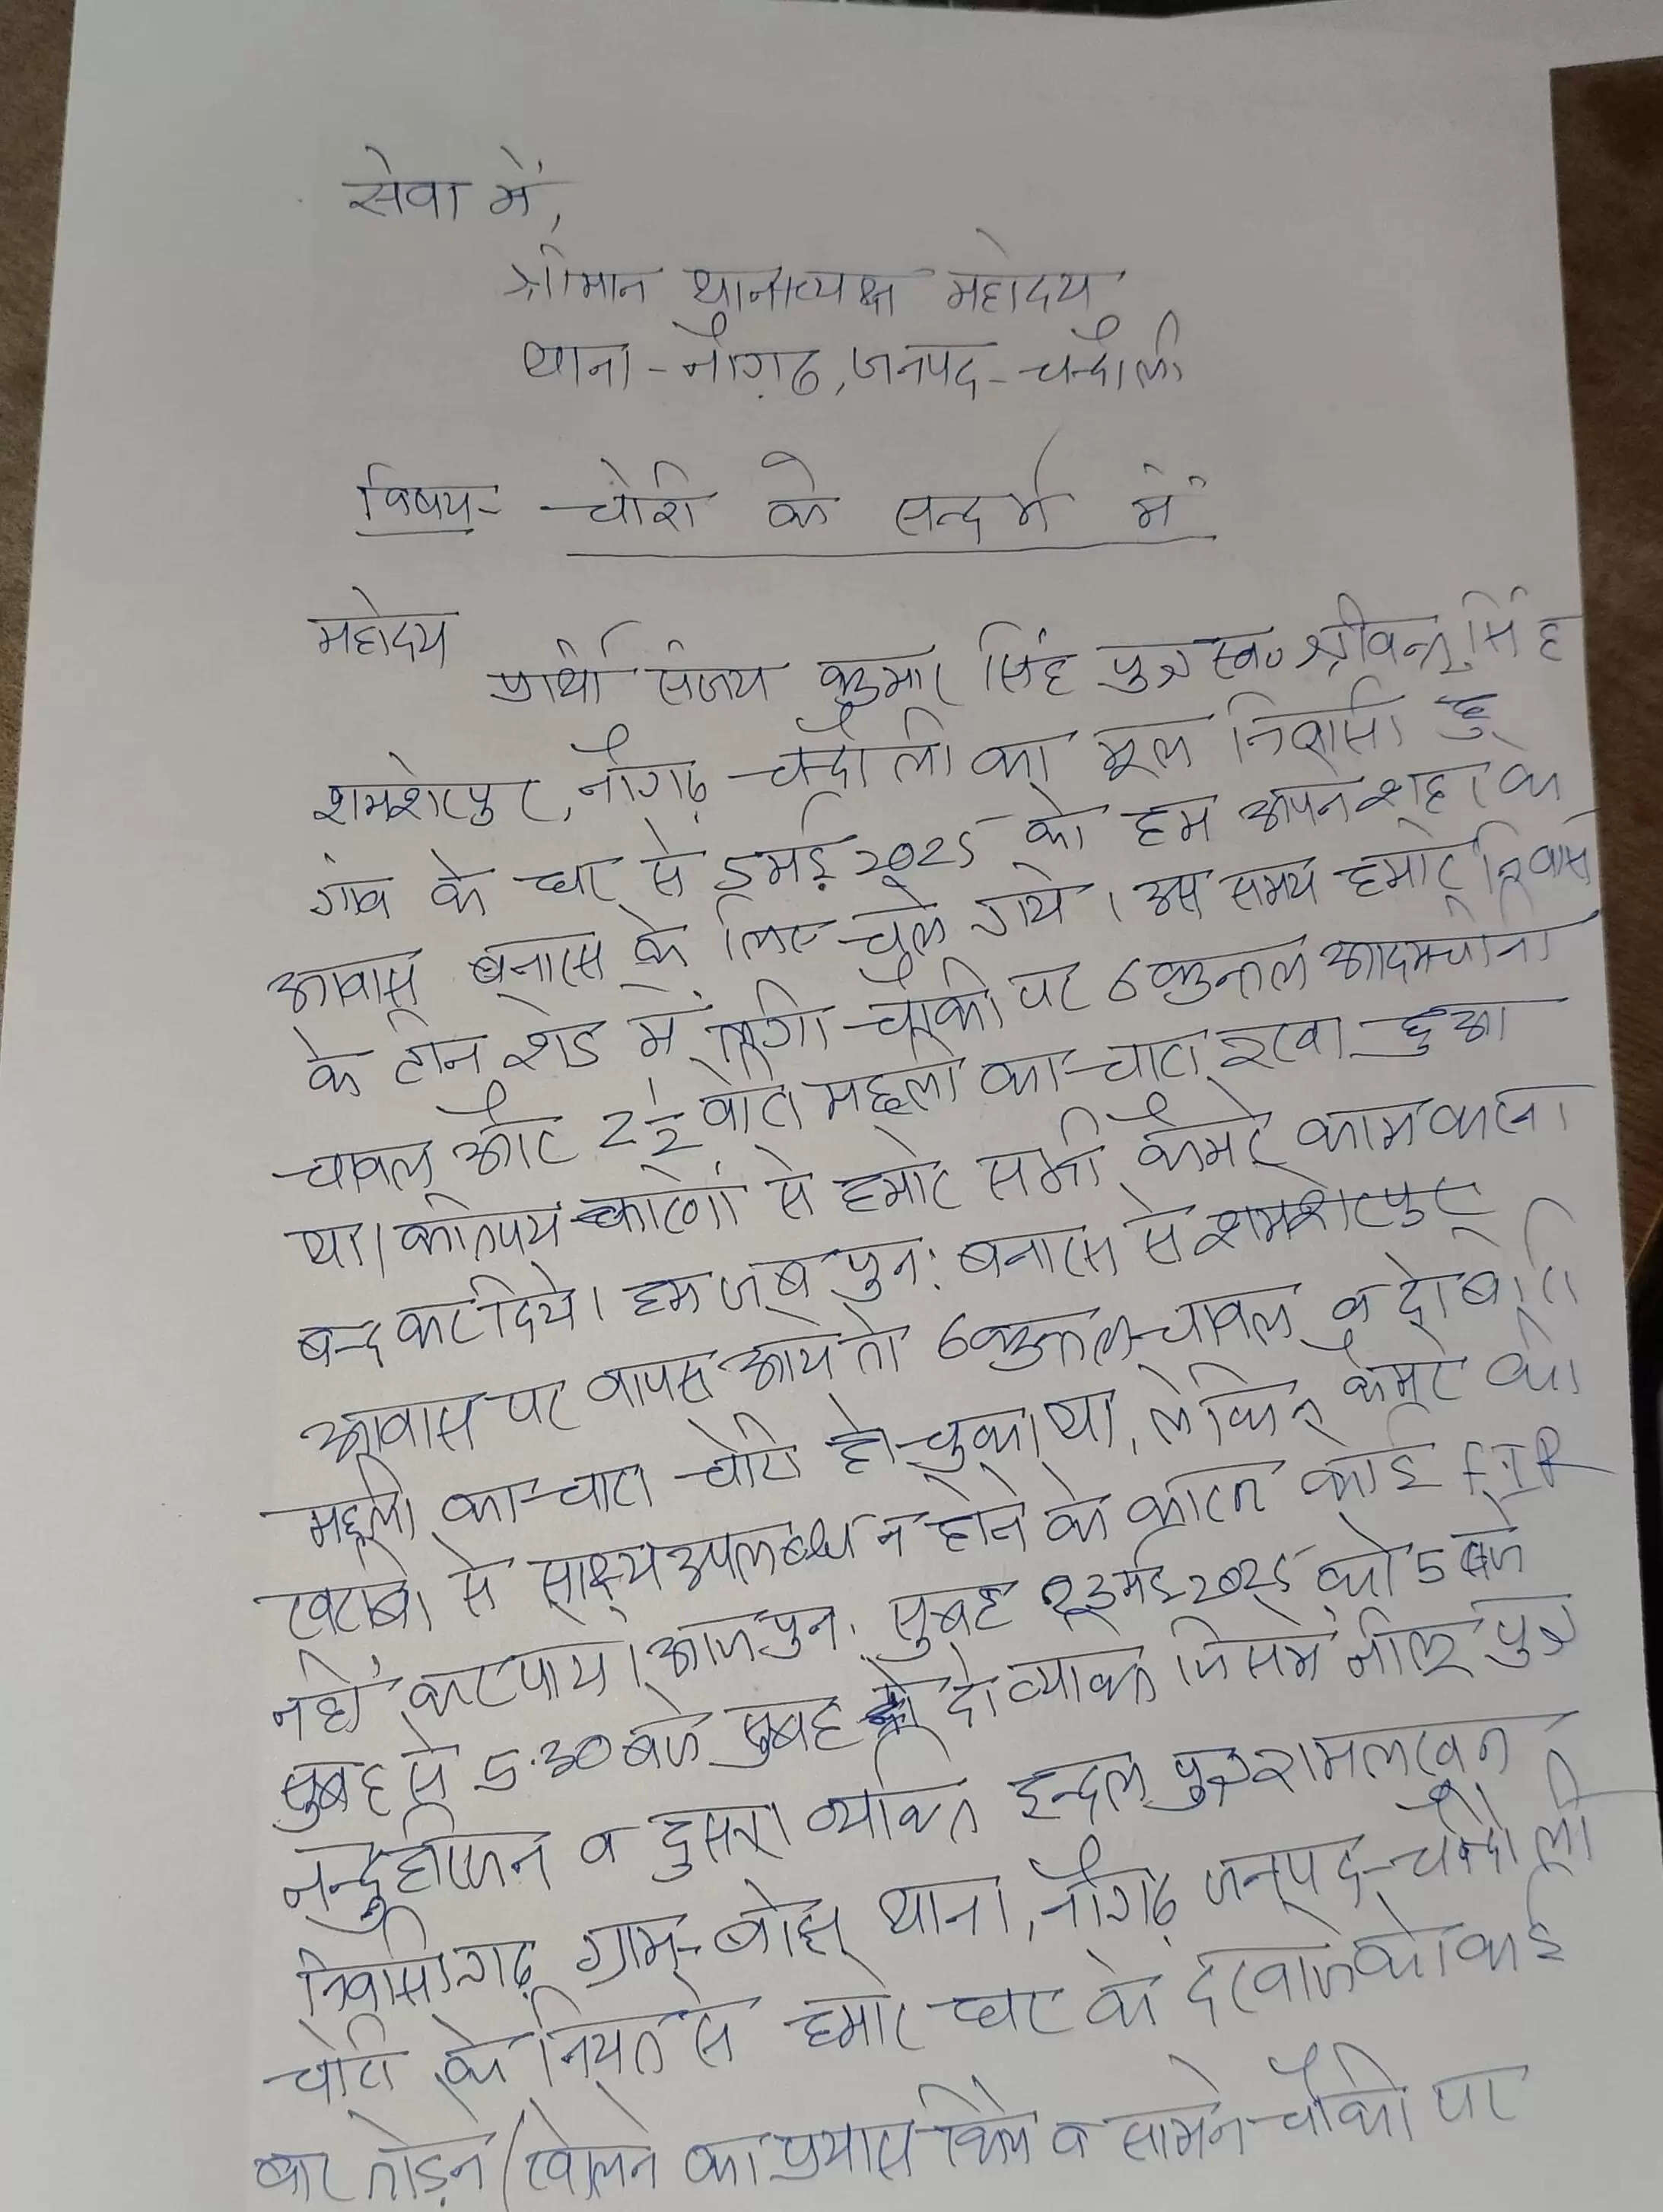 सेवा में,
श्रीमान थानाध्यक्ष महोदय
थाना - नौगढ़, जनपद - चन्दौली
विषय - चोरी के सन्दर्भ में
महोदय
प्रार्थी संजय कुमार सिंह पुत्र स्व० श्री सिंह
शमशेरपुर, नौगढ़ चन्दौली का मूल निवासी हूँ
गांव के घर से 5 मई 2025 को हम अपने शहर के
आवास बनारस के लिए चले गये। उस समय हमारे निवास
के टीन शेड में लगी चौकी पर 6 कुन्तल आदमचीनी
चावल और 2½ बोरी मछली का चारा रखा हुआ
था। कतिपय कारणों से हमारे सभी कैमरे काम करना
बन्द कर दिये। हम जब पुनः बनारस से शमशेरपुर
आवास पर वापस आये तो 6 कुन्तल चावल व दो बोरी
मछली का चारा चोरी हो चुका था, लेकिन कैमरे की
खराबी से साक्ष्य उपलब्ध न होने के कारण कोई FIR
नहीं कर पाया। आज पुनः सुबह 23 मई 2025 को 5 बजे
सुबह से 5:30 बजे सुबह दो व्यक्ति जिसमें पुत्र
नन्दु हरिजन व दुसरा व्यक्ति इन्दल पुत्र रामलखन
निवासीगढ़ ग्राम- थाना, नौगढ़ जनपद-चन्दौली
चोरी के नियत से हमारे घर के दरवाजे को कई
बार तोड़ने/खोलने का प्रयास किये व सामने चौकी पर